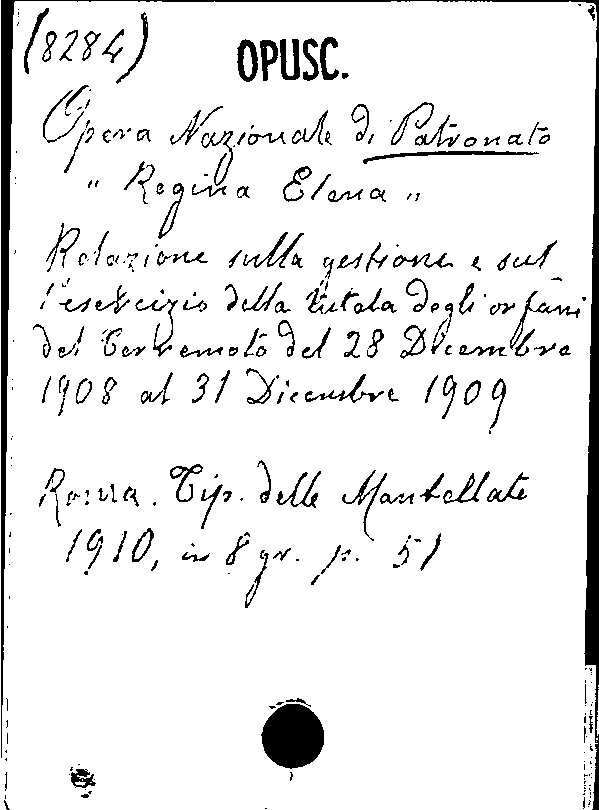 (8284)
OPUSC.
Opera Nazionale di Patronato
" Regina Elena "
Relazione sulla gestione e sul
l'esercizio della tutela degli orfani
del terremoto del 28 Dicembre
1908 al 31 Dicembre 1909
Roma. Tip. delle Mantellate
1910, in 8 gr. p. 51